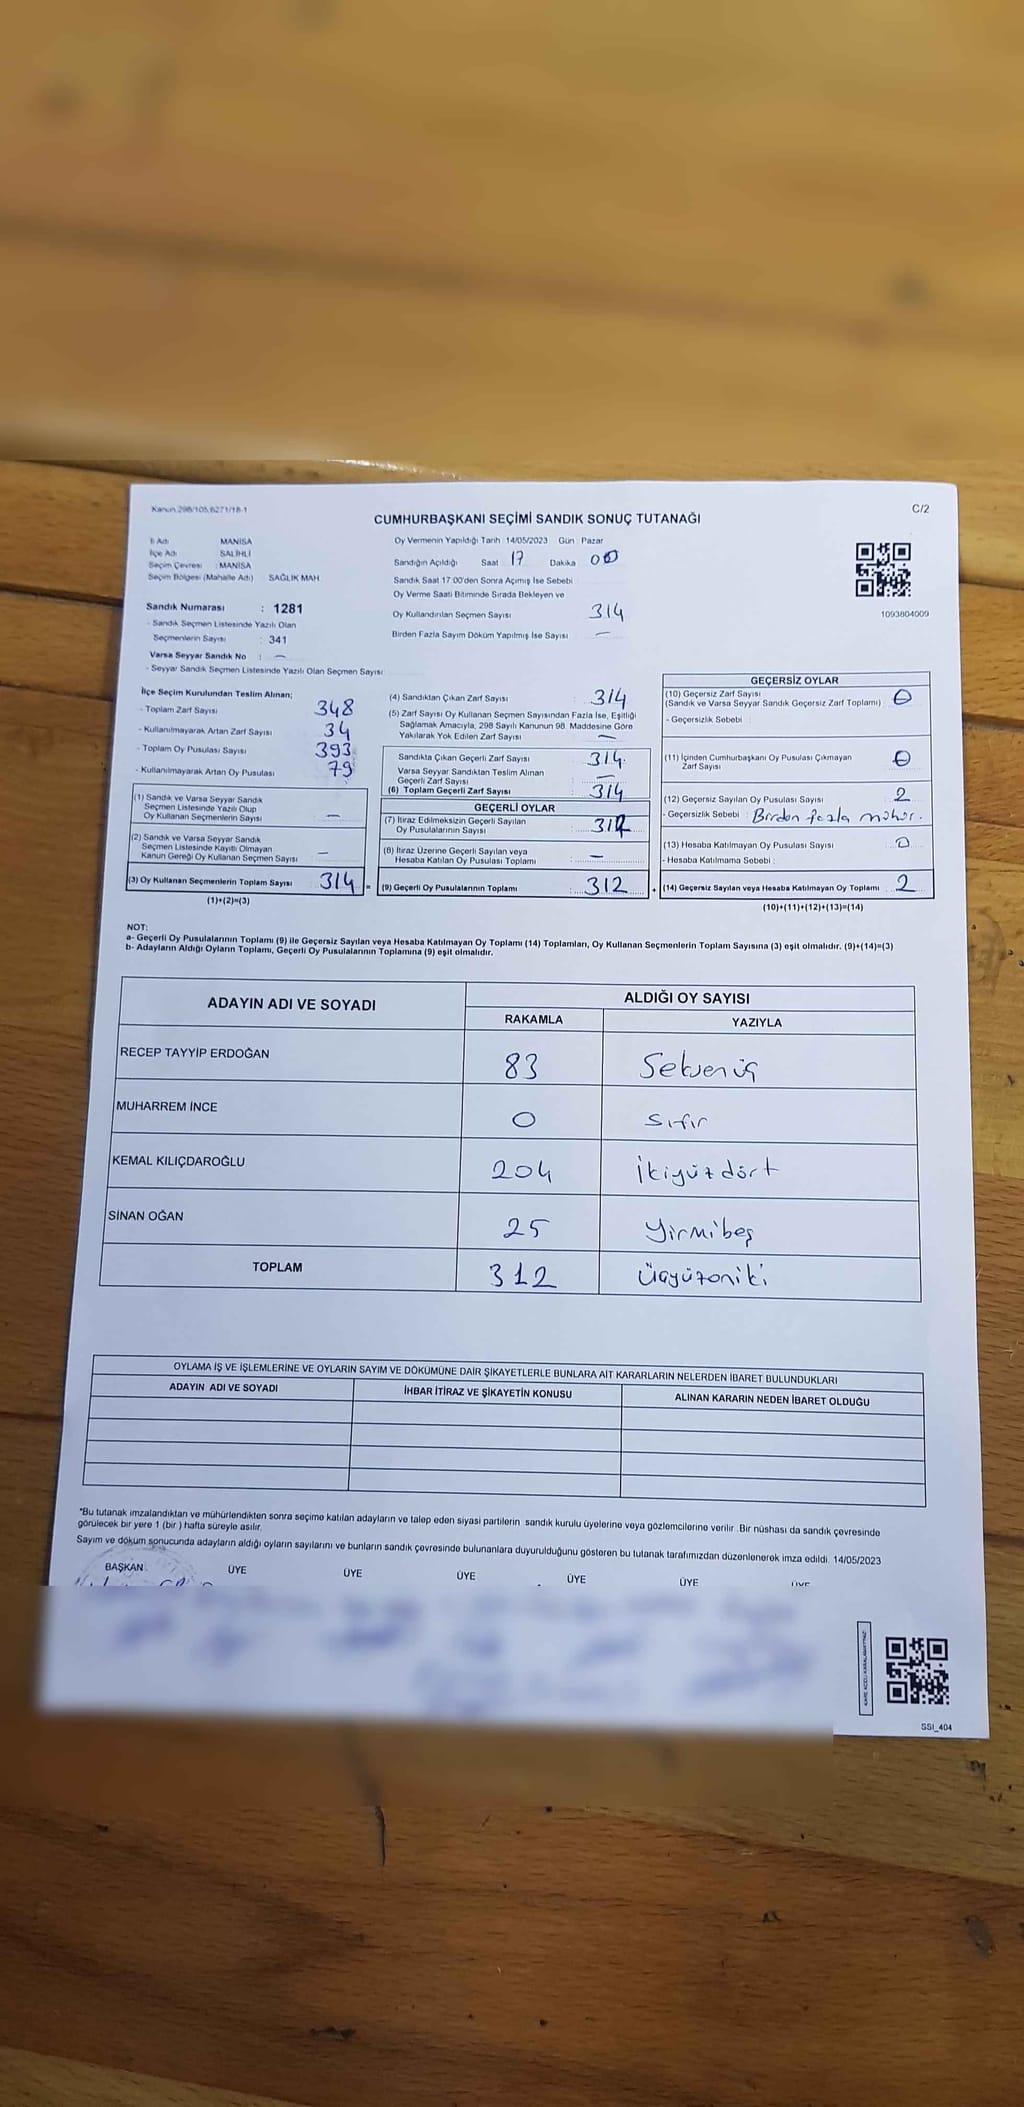 Kanun.298/105,6271/18-1
C/2
CUMHURBAŞKANI SEÇİMİ SANDIK SONUÇ TUTANAĞI
İl Adı MANİSA
İlçe Adı SALİHLİ
Seçim Çevresi : MANİSA
Seçim Bölgesi (Mahalle Adı) SAĞLIK MAH.
Sandık Numarası : 1281
- Sandık Seçmen Listesinde Yazılı Olan
Seçmenlerin Sayısı : 341
Varsa Seyyar Sandık No : —
- Seyyar Sandık Seçmen Listesinde Yazılı Olan Seçmen Sayısı:
Oy Vermenin Yapıldığı Tarih :14/05/2023 Gün : Pazar
Sandığın Açıldığı Saat 17 Dakika 00
Sandık Saat 17:00'den Sonra Açımış İse Sebebi
Oy Verme Saati Bitiminde Sırada Bekleyen ve
Oy Kullandırılan Seçmen Sayısı 314
Birden Fazla Sayım Döküm Yapılmış İse Sayısı —
1093804009
İlçe Seçim Kurulundan Teslim Alınan;
- Toplam Zarf Sayısı 348
- Kullanılmayarak Artan Zarf Sayısı 34
- Toplam Oy Pusulası Sayısı 393
- Kullanılmayarak Artan Oy Pusulası 79
(1) Sandık ve Varsa Seyyar Sandık
Seçmen Listesinde Yazılı Olup
Oy Kullanan Seçmenlerin Sayısı —
(2) Sandık ve Varsa Seyyar Sandık
Seçmen Listesinde Kayıtlı Olmayan
Kanun Gereği Oy Kullanan Seçmen Sayısı —
(3) Oy Kullanan Seçmenlerin Toplam Sayısı 314 =
(1)+(2)=(3)
(4) Sandıktan Çıkan Zarf Sayısı 314
(5) Zarf Sayısı Oy Kullanan Seçmen Sayısından Fazla İse, Eşitliği
Sağlamak Amacıyla, 298 Sayılı Kanunun 98. Maddesine Göre
Yakılarak Yok Edilen Zarf Sayısı —
Sandıkta Çıkan Geçerli Zarf Sayısı 314
Varsa Seyyar Sandıktan Teslim Alınan
Geçerli Zarf Sayısı —
(6) Toplam Geçerli Zarf Sayısı 314
GEÇERLİ OYLAR
(7) İtiraz Edilmeksizin Geçerli Sayılan
Oy Pusulalarının Sayısı 312
(8) İtiraz Üzerine Geçerli Sayılan veya
Hesaba Katılan Oy Pusulası Toplamı : —
(9) Geçerli Oy Pusulalarının Toplamı : 312 +
GEÇERSİZ OYLAR
(10) Geçersiz Zarf Sayısı
(Sandık ve Varsa Seyyar Sandık Geçersiz Zarf Toplamı) : 0
- Geçersizlik Sebebi :
(11) İçinden Cumhurbaşkanı Oy Pusulası Çıkmayan
Zarf Sayısı : 0
(12) Geçersiz Sayılan Oy Pusulası Sayısı 2
- Geçersizlik Sebebi : Birden fazla mühür.
(13) Hesaba Katılmayan Oy Pusulası Sayısı : 0
- Hesaba Katılmama Sebebi :
(14) Geçersiz Sayılan veya Hesaba Katılmayan Oy Toplamı : 2
(10)+(11)+(12)+(13)=(14)
NOT:
a- Geçerli Oy Pusulalarının Toplamı (9) ile Geçersiz Sayılan veya Hesaba Katılmayan Oy Toplamı (14) Toplamları, Oy Kullanan Seçmenlerin Toplam Sayısına (3) eşit olmalıdır. (9)+(14)=(3)
b- Adayların Aldığı Oyların Toplamı, Geçerli Oy Pusulalarının Toplamına (9) eşit olmalıdır.
ADAYIN ADI VE SOYADI ALDIĞI OY SAYISI
RAKAMLA YAZIYLA
RECEP TAYYİP ERDOĞAN 83 Seksenüç
MUHARREM İNCE 0 sıfır
KEMAL KILIÇDAROĞLU 204 İkiyüzdört
SİNAN OĞAN 25 yirmibeş
TOPLAM 312 Üçyüzoniki
OYLAMA İŞ VE İŞLEMLERİNE VE OYLARIN SAYIM VE DÖKÜMÜNE DAİR ŞİKAYETLERLE BUNLARA AİT KARARLARIN NELERDEN İBARET BULUNDUKLARI
ADAYIN ADI VE SOYADI İHBAR İTİRAZ VE ŞİKAYETİN KONUSU ALINAN KARARIN NEDEN İBARET OLDUĞU
*Bu tutanak imzalandıktan ve mühürlendikten sonra seçime katılan adayların ve talep eden siyasi partilerin sandık kurulu üyelerine veya gözlemcilerine verilir. Bir nüshası da sandık çevresinde
görülecek bir yere 1 (bir ) hafta süreyle asılır.
Sayım ve döküm sonucunda adayların aldığı oyların sayılarını ve bunların sandık çevresinde bulunanlara duyurulduğunu gösteren bu tutanak tarafımızdan düzenlenerek imza edildi. 14/05/2023
BAŞKAN ÜYE ÜYE ÜYE ÜYE ÜYE ÜYE
SSI_404